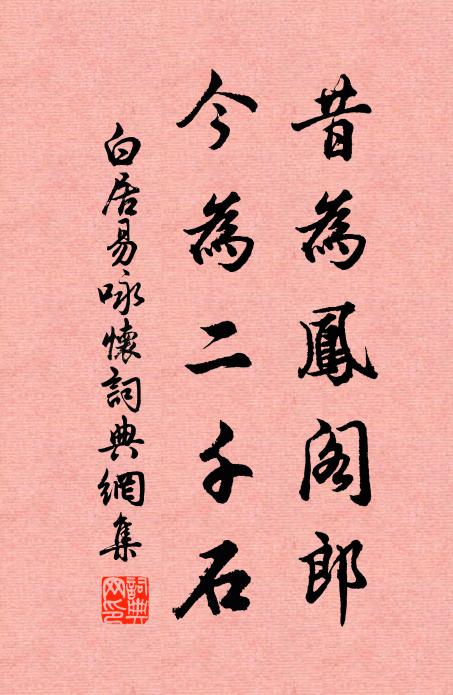 昔為鳳阁郎
今為二千石
白居易咏懷詞典網集
詞典网印